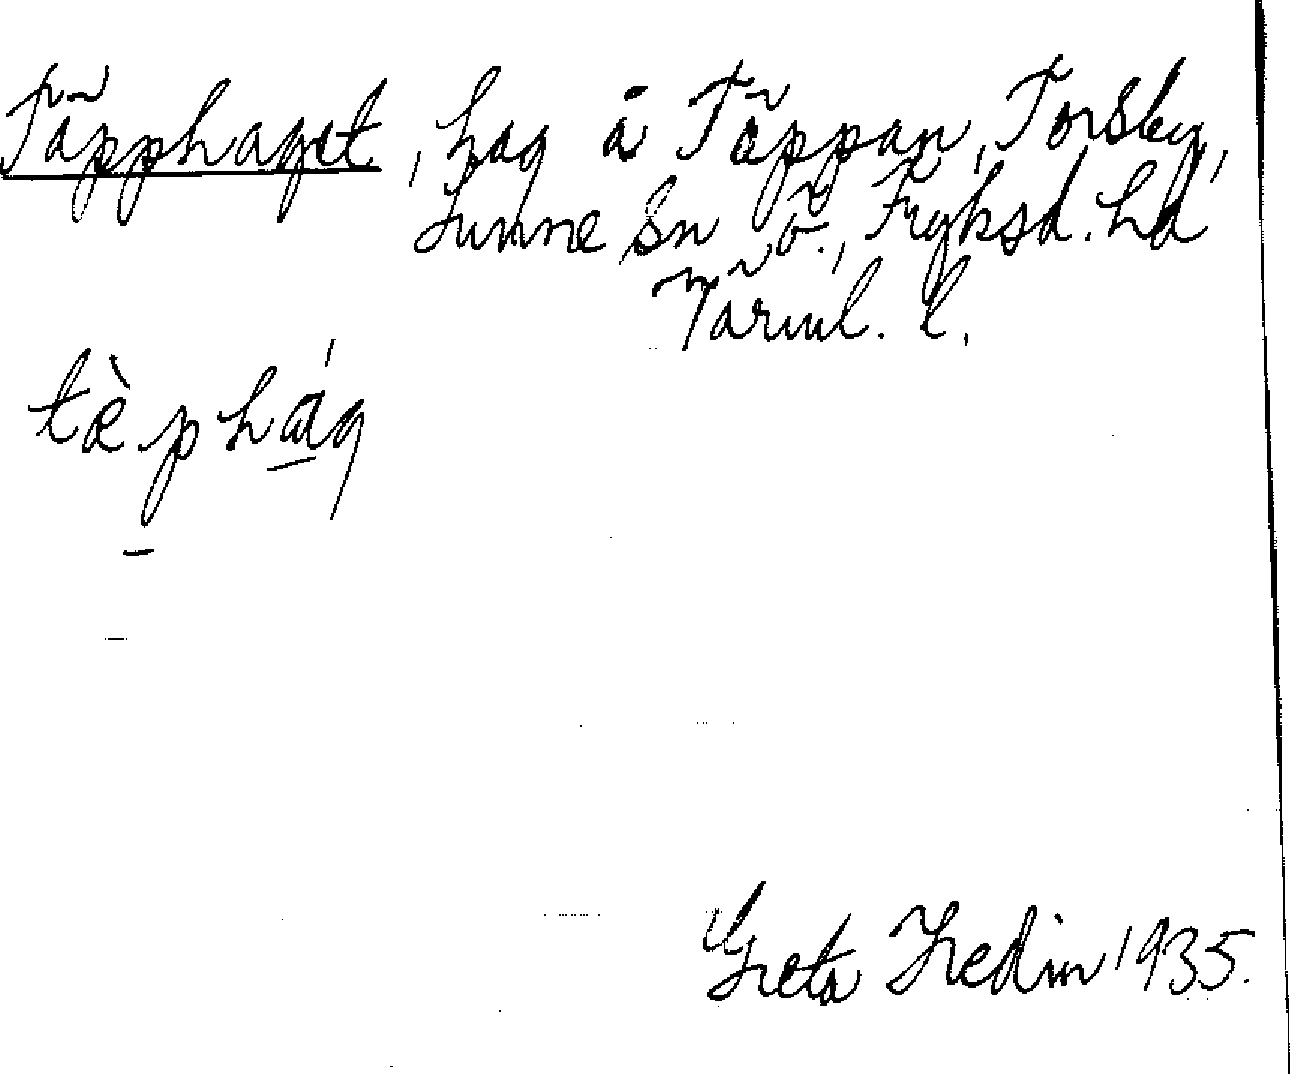 Täpphaget, hag å Täppan, Torsby,
Sunne sn ö., Fryksd. hd
Värml. l.
tæ̀phág
Greta Hedin 1935.